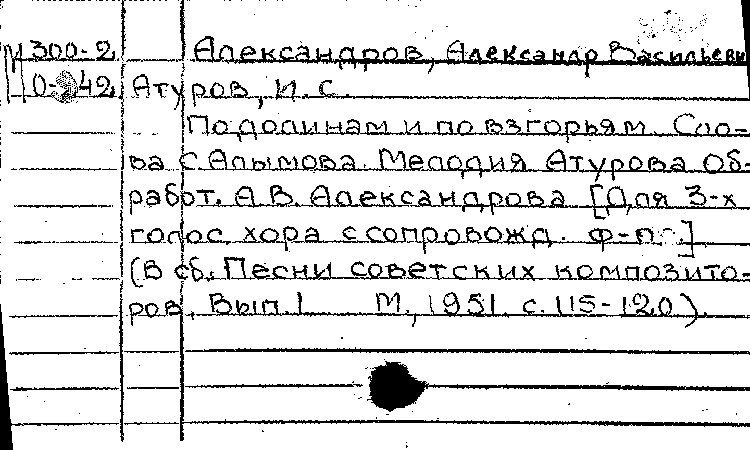 М 300-2 Александров, Александр Васильеви
Атуров, И. С.
По долинам и по взгорьям. Сло-
ва С. Алымова. Мелодия Атурова Об-
работ. А.В. Александрова [Для 3-х
голос. хора с сопровожд. ф-п.]
(В сб. Песни советских композито-
ров, Вып. 1 М., 1951. с. 115-120).